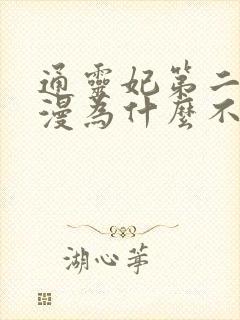 通靈妃第二
漫為什麼不
湖心茅